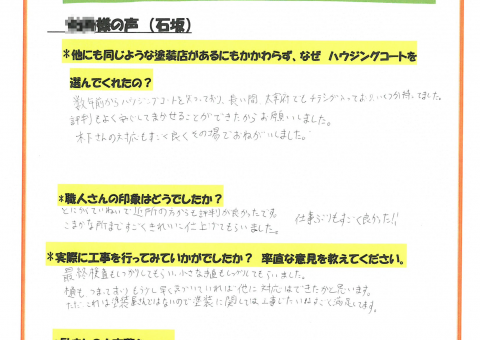 様の声（石坂）
＊他にも同じような塗装店があるにもかかわらず、なぜ ハウジングコートを
選んでくれたの？
数年前からハウジングコートを知っており、長い間
評判もよく安心してまかせることができたからお願いしました。
木下さんの対応もすごく良くその場でおねがいしました。
＊職人さんの印象はどうでしたか？
とにかくていねいで近所の方からも評判が良かったです。
こまかな所まですごくきれいに仕上げてもらいました。
仕事ぶりもすごく良かった!!
＊実際に工事を行ってみていかがでしたか？ 率直な意見を教えてください。
最終検査もしっかりしてもらい、小さな補修もしっかりしてもらいました。
もう少し早く気づいていれば他に対応はできたかと思います。
ただこれは塗装屋さんとはないので塗装に関しては工事じたいはすごく満足してます。